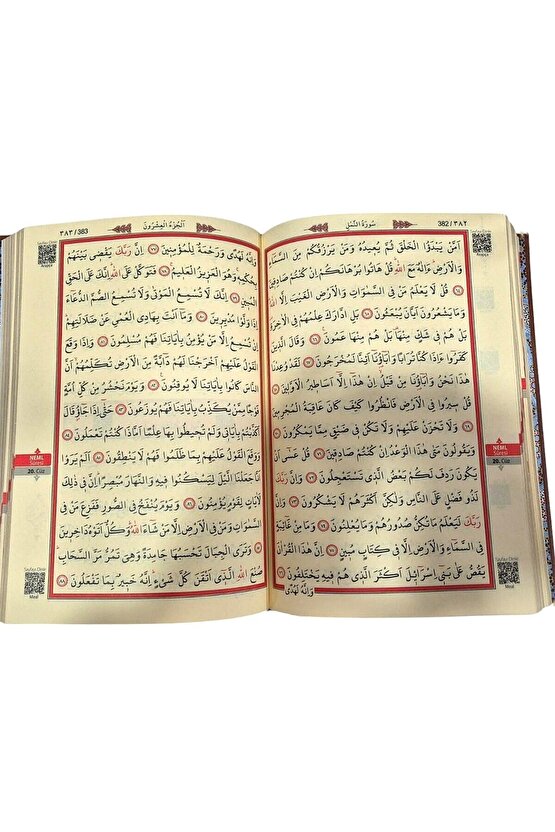 382/٣٨٢
سُورَةُ النَّمْلِ
اَمَّنْ يَبْدَؤُا الْخَلْقَ ثُمَّ يُعِيدُهُ وَمَنْ يَرْزُقُكُمْ مِنَ السَّمَٓاءِ
وَالْاَرْضِ ءَاِلٰهٌ مَعَ اللّٰهِ قُلْ هَاتُوا بُرْهَانَكُمْ اِنْ كُنْتُمْ صَادِقٖينَ
٦٤ قُلْ لَا يَعْلَمُ مَنْ فِي السَّمٰوَاتِ وَالْاَرْضِ الْغَيْبَ اِلَّا اللّٰهُ
وَمَا يَشْعُرُونَ اَيَّانَ يُبْعَثُونَ ٦٥ بَلِ ادَّارَكَ عِلْمُهُمْ فِي الْاٰخِرَةِ
بَلْ هُمْ فٖي شَكٍّ مِنْهَا بَلْ هُمْ مِنْهَا عَمُونَ ٦٦ وَقَالَ الَّذٖينَ
كَفَرُٓوا ءَاِذَا كُنَّا تُرَابًا وَاٰبَٓاؤُ۬نَٓا اَئِنَّا لَمُخْرَجُونَ ٦٧ لَقَدْ وُعِدْنَا
هٰذَا نَحْنُ وَاٰبَٓاؤُ۬نَا مِنْ قَبْلُ اِنْ هٰذَٓا اِلَّٓا اَسَاطٖيرُ الْاَوَّلٖينَ ٦٨
قُلْ سٖيرُوا فِي الْاَرْضِ فَانْظُرُوا كَيْفَ كَانَ عَاقِبَةُ الْمُجْرِمٖينَ
٦٩ وَلَا تَحْزَنْ عَلَيْهِمْ وَلَا تَكُنْ فٖي ضَيْقٍ مِمَّا يَمْكُرُونَ ٧٠
وَيَقُولُونَ مَتٰى هٰذَا الْوَعْدُ اِنْ كُنْتُمْ صَادِقٖينَ ٧١ قُلْ عَسٰٓى اَنْ
يَكُونَ رَدِفَ لَكُمْ بَعْضُ الَّذٖي تَسْتَعْجِلُونَ ٧٢ وَاِنَّ رَبَّكَ
لَذُو فَضْلٍ عَلَى النَّاسِ وَلٰكِنَّ اَكْثَرَهُمْ لَا يَشْكُرُونَ ٧٣ وَاِنَّ
رَبَّكَ لَيَعْلَمُ مَا تُكِنُّ صُدُورُهُمْ وَمَا يُعْلِنُونَ ٧٤ وَمَا مِنْ غَٓائِبَةٍ
فِي السَّمَٓاءِ وَالْاَرْضِ اِلَّا فٖي كِتَابٍ مُبٖينٍ ٧٥ اِنَّ هٰذَا الْقُرْاٰنَ
يَقُصُّ عَلٰى بَنٖٓي اِسْرَٓائٖلَ اَكْثَرَ الَّذٖي هُمْ فٖيهِ يَخْتَلِفُونَ ٧٦
وَاِنَّهُ لَهُدًى
NEML
Sûresi
20. Cüz
Meal
٣٨٣/383
اَلْجُزْءُ الْعِشْرُونَ
وَاِنَّهُ لَهُدًى وَرَحْمَةٌ لِلْمُؤْمِنٖينَ ٧٧ اِنَّ رَبَّكَ يَقْضٖي بَيْنَهُمْ
بِحُكْمِهٖ وَهُوَ الْعَزٖيزُ الْعَلٖيمُ ٧٨ فَتَوَكَّلْ عَلَى اللّٰهِ اِنَّكَ عَلَى الْحَقِّ
الْمُبٖينِ ٧٩ اِنَّكَ لَا تُسْمِعُ الْمَوْتٰى وَلَا تُسْمِعُ الصُّمَّ الدُّعَٓاءَ
اِذَا وَلَّوْا مُدْبِرٖينَ ٨٠ وَمَٓا اَنْتَ بِهَادِي الْعُمْيِ عَنْ ضَلَالَتِهِمْ
اِنْ تُسْمِعُ اِلَّا مَنْ يُؤْمِنُ بِاٰيَاتِنَا فَهُمْ مُسْلِمُونَ ٨١ وَاِذَا وَقَعَ
الْقَوْلُ عَلَيْهِمْ اَخْرَجْنَا لَهُمْ دَٓابَّةً مِنَ الْاَرْضِ تُكَلِّمُهُمْ اَنَّ
النَّاسَ كَانُوا بِاٰيَاتِنَا لَا يُوقِنُونَ ٨٢ وَيَوْمَ نَحْشُرُ مِنْ كُلِّ اُمَّةٍ
فَوْجًا مِمَّنْ يُكَذِّبُ بِاٰيَاتِنَا فَهُمْ يُوزَعُونَ ٨٣ حَتّٰٓى اِذَا جَٓاؤُ۫ قَالَ
اَكَذَّبْتُمْ بِاٰيَاتٖي وَلَمْ تُحٖيطُوا بِهَا عِلْمًا اَمَّاذَا كُنْتُمْ تَعْمَلُونَ ٨٤
وَوَقَعَ الْقَوْلُ عَلَيْهِمْ بِمَا ظَلَمُوا فَهُمْ لَا يَنْطِقُونَ ٨٥ اَلَمْ يَرَوْا
اَنَّا جَعَلْنَا الَّيْلَ لِيَسْكُنُوا فٖيهِ وَالنَّهَارَ مُبْصِرًا اِنَّ فٖي ذٰلِكَ
لَاٰيَاتٍ لِقَوْمٍ يُؤْمِنُونَ ٨٦ وَيَوْمَ يُنْفَخُ فِي الصُّورِ فَفَزِعَ مَنْ فِي
السَّمٰوَاتِ وَمَنْ فِي الْاَرْضِ اِلَّا مَنْ شَٓاءَ اللّٰهُ وَكُلٌّ اَتَوْهُ دَاخِرٖينَ
٨٧ وَتَرَى الْجِبَالَ تَحْسَبُهَا جَامِدَةً وَهِيَ تَمُرُّ مَرَّ السَّحَابِ
صُنْعَ اللّٰهِ الَّذٖٓي اَتْقَنَ كُلَّ شَيْءٍ اِنَّهُ خَبٖيرٌ بِمَا تَفْعَلُونَ ٨٨
NEML
Sûresi
20. Cüz
Meal